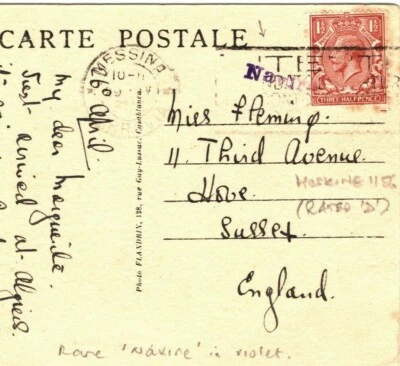 CARTE POSTALE
MESSINA
10-11
Navir
1½ 1½
THREE HALFPENCE
9th April
My dear Marguerite.
Just arrived at Algiers.
Photo FLANDRIN, 128, rue Guy-Lussac, Casablanca.
Miss Fleming.
11 Third Avenue.
Hove.
Sussex.
England.
HOSKING 1156
(RATED 'D')
Rare 'Navire' in violet.